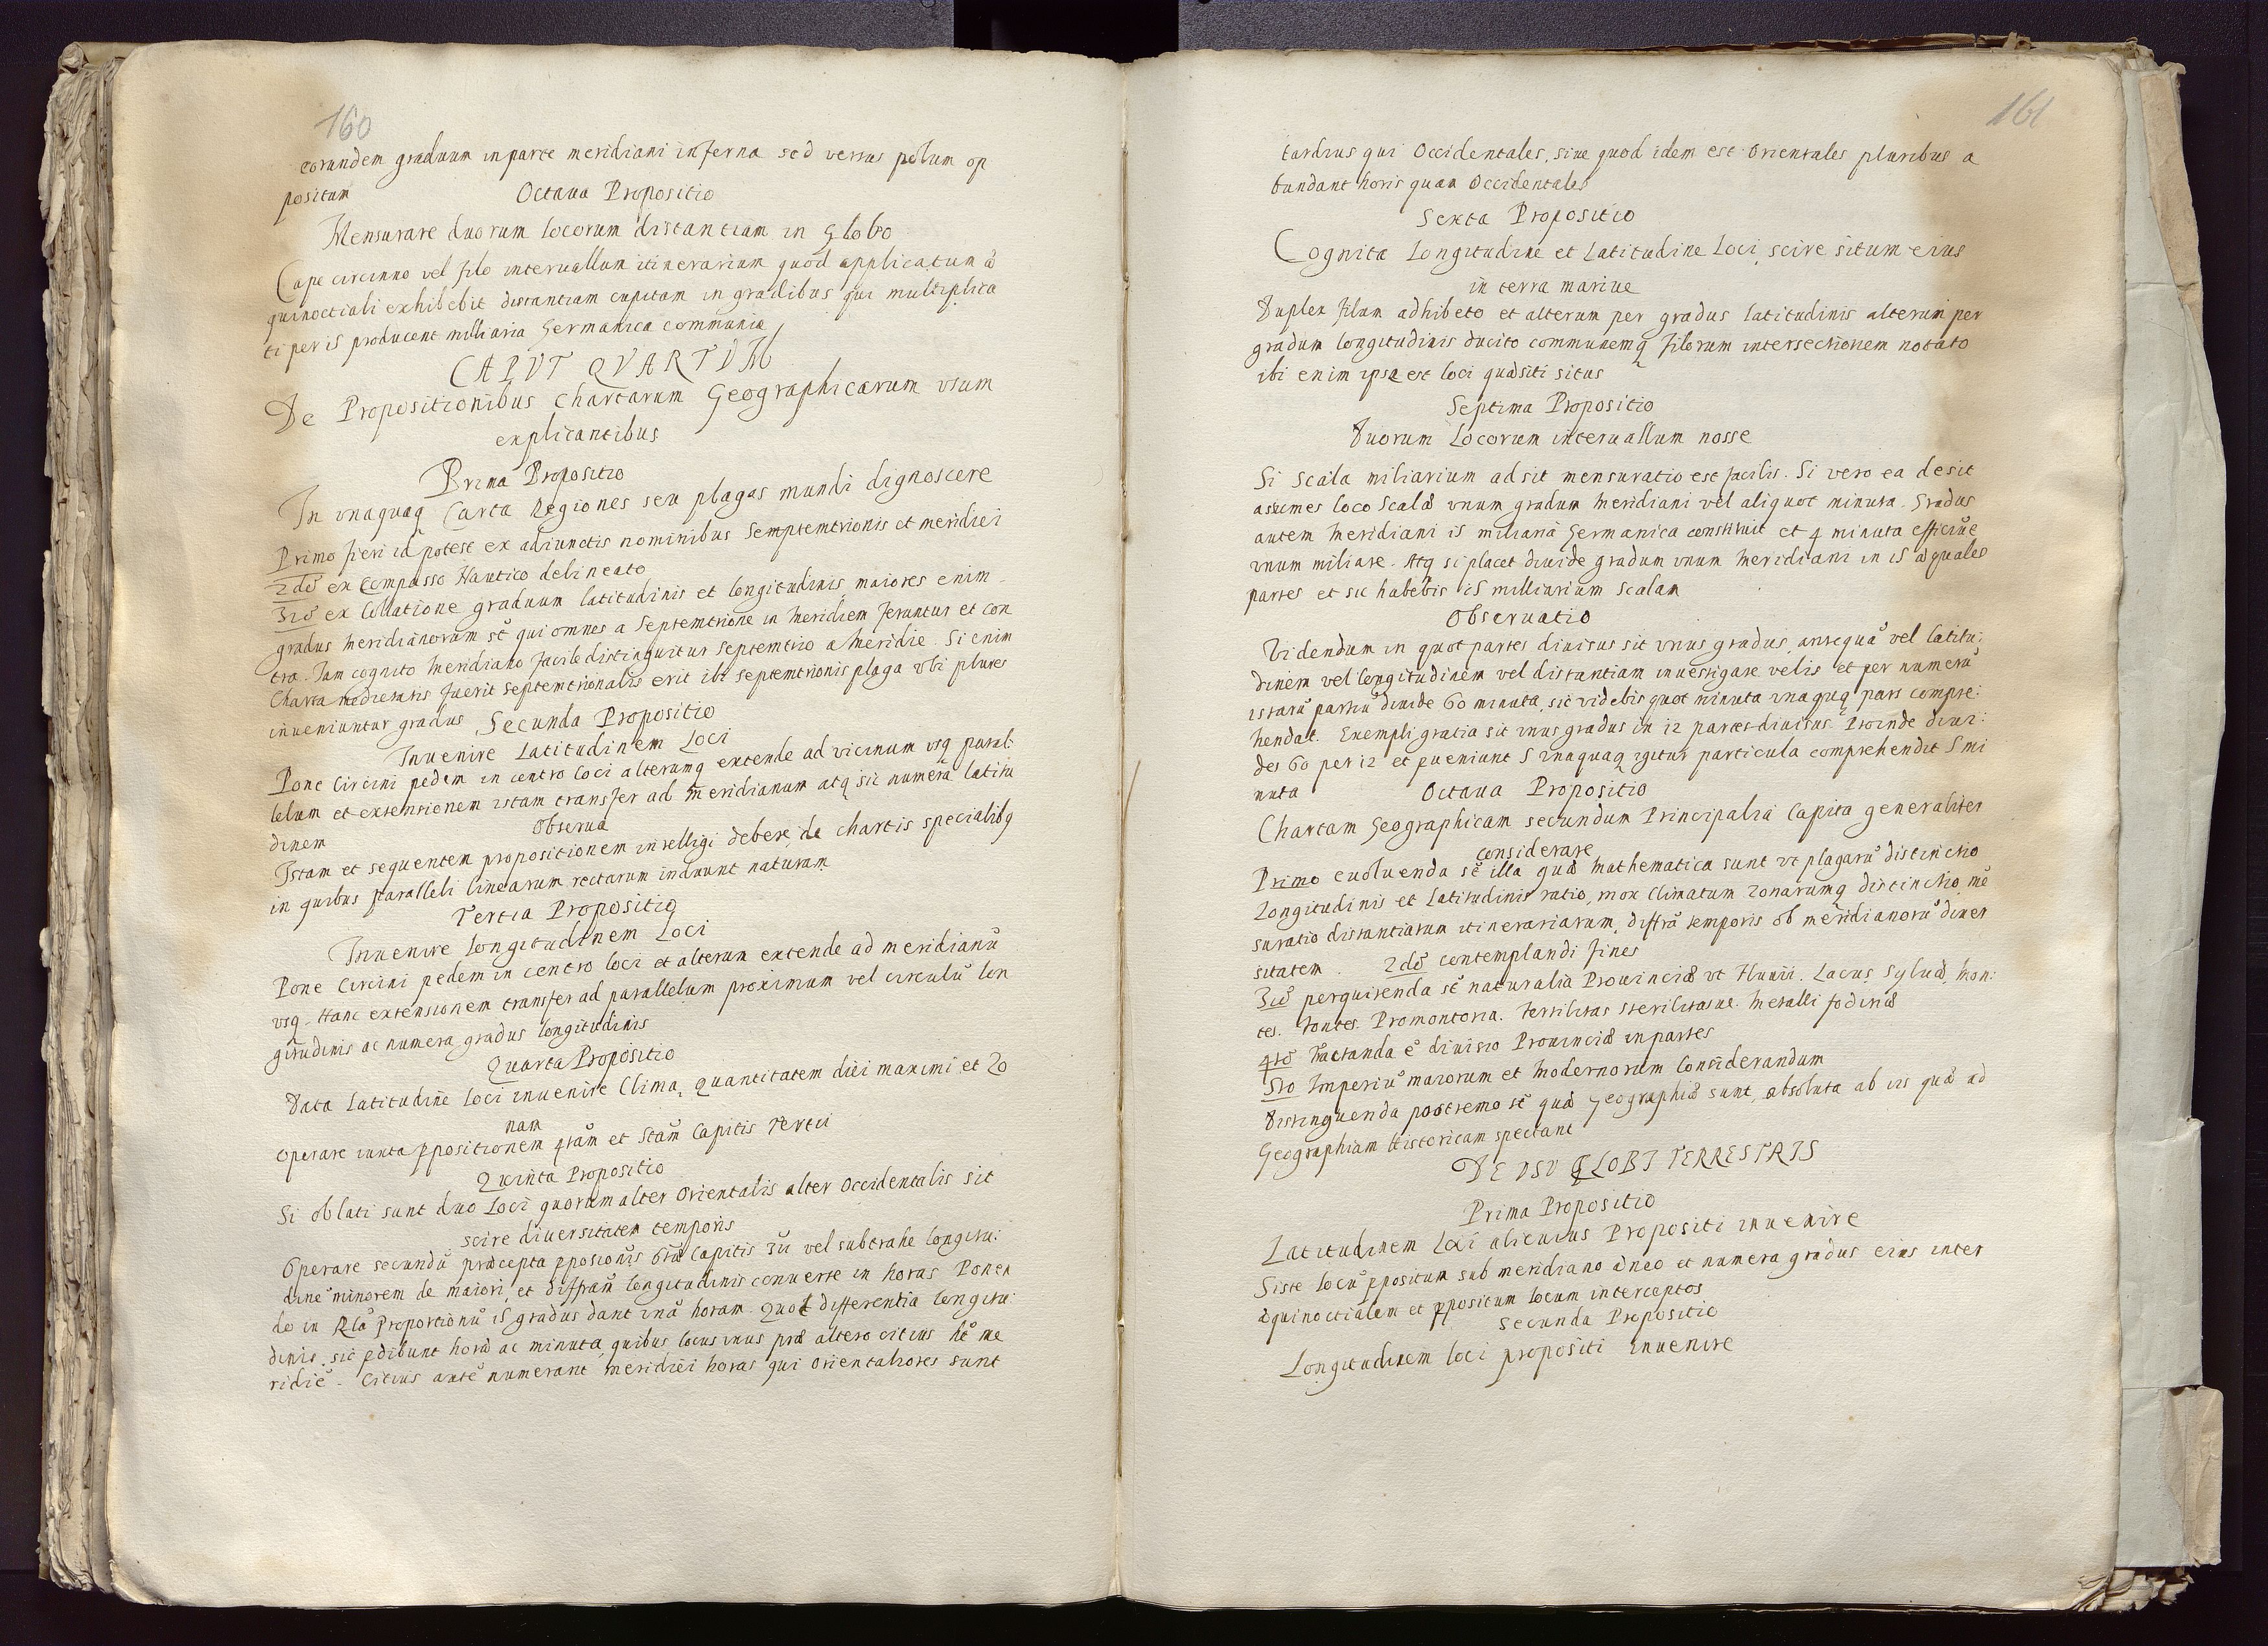 160
eorundem graduum in parte meridiani inferna sed versus polum op
positum
Octaua Propositio
Mensurare duorum locorum distantiam in Globo
Cape circinno vel filo interuallum itinerarium quod applicatum æ
quinoctiali exhibebit distantiam cupitam in gradibus qui multiplica
ti per 15 producent milliaria Germanica communia
CAPVT QVARTVM
De Propositionibus Chartarum Geographicarum vsum
explicantibus
Prima Propositio
In vnaquaq Carta Regiones seu plagas mundi dignoscere
Primo fieri id potest ex adiunctis nominibus Semptemtrionis et meridiei
2dō ex Compasso Nautico delineato
3iō ex Collatione graduum latitudinis et longitudinis, maiores enim
gradus meridianorum st̄ qui omnes a Septemtrione in Meridiem feruntur et con
tra. Iam cognito Meridiano facile distinguitur septemtrio a Meridie. Si enim
Charta medietatis fuerit septemtrionalis erit ibi septemtrionis plaga vbi plures
inueniuntur gradus
Secunda Propositio
Inuenire Latitudinem Loci
Pone Circini pedem in centro loci alterumq extende ad vicinum vsq paral:
lelum et extensionem istam transfer ad Meridianum atq sic numera latitu
dinem
Obserua
Istam et sequentem propositionem intelligi debere, de chartis specialibq
in quibus paralleli linearum rectarum induunt naturam
Tertia Propositio
Inuenire Longitudinem Loci
Pone Circini pedem in centro loci et alterum extende ad meridianū
vsq. Hanc extensionem transfer ad parallelum proximum vel circulū lon
gitudinis ac numera gradus longitudinis
Quarta Propositio
Data Latitudine Loci inuenire Clima, quantitatem diei maximi et Zo
nam
Operare iuxta ppositionem 4tām et 5tām Capitis Tertii
Quinta Propositio
Si oblati sunt duo Loci quorum alter Orientalis alter Occidentalis sit
scire diuersitatem temporis
Operare secundū præcepta pposionis 6tæ Capitis 3ii vel subtrahe longitu:
dinē minorem de maiori, et diffrām longitudinis conuerte in horas Ponen
do in Rlā Proportionū 15 gradus dant vnā horam. Quot differentia longitu:
dinis, sic pdibunt horæ ac minuta, quibus locus vnus præ altero citius ht̄ me
ridiē. Citius autē numerant Meridiei horas qui Orientaliores sunt
161
tardius qui Occidentales, siue quod idem est Orientales pluribus a
bundant horis quam Occidentales
Sexta Propositio
Cognita Longitudine et Latitudine Loci, scire situm eius
in terra mariue
Duplex filum adhibeto et alterum per gradus latitudinis alterum per
gradum longitudinis ducito communemq filorum intersectionem notato
ibi enim ipsa est loci quæsiti situs
Septima Propositio
Duorum Locorum interuallum nosse
Si Scala miliarium adsit mensuratio est facilis. Si vero ea desit
assumes loco Scalæ vnum gradum Meridiani vel aliquot minuta. Gradus
autem Meridiani 15 miliaria Germanica constituit et 4 minuta efficiūt
vnum miliare. Atq si placet diuide gradum vnum Meridiani in 15 æquales
partes et sic habebis 15 milliarium scalam
Obseruatio
Videndum in quot partes diuisus sit vnus gradus, antequā vel latitu:
dinem vel longitudinem vel distantiam inuestigare velis et per numerū
istarū partiū diuide 60 minuta, sic videbis quot minuta vna quæq pars compre:
hendat. Exempli gratia sit vnus gradus in 12 partes diuisus. Proinde diui:
des 60 per 12 et pueniunt 5 vnaquaq igitur particula comprehendit 5 mi
nuta
Octaua Propositio
Chartam Geographicam secundum Principalia Capita generaliter
considerare
Primo euoluenda st̄ illa quæ Mathematica sunt vt plagarū distinctio
Longitudinis et Latitudinis ratio, mox Climatum Zonarumq distinctio, mē
suratio distantiarum itinerariarum, diffrā temporis ob meridianorū diuer
sitatem. 2dō contemplandi fines
3iō perquirenda st̄ naturalia Prouinciæ vt Fluuii. Lacus, Syluæ, Mon:
tes. Fontes. Promontoria. Fertilitas sterilitasue. Metalli fodinæ
4tō Tractanda ē diuisio Prouinciæ in partes
5to Imperiū maiorum et Modernorum Considerandum
Distinguenda postremo st̄ quæ Geographiæ sunt, absoluta ab iis quæ ad
Geographiam Historicam spectant
DE VSV GLOBI TERRESTRIS
Prima Propositio
Latitudinem Loci alicuius Propositi inuenire
Siste locū ppositum sub meridiano æneo et numera gradus eius inter
æquinoctialem et ppositum locum interceptos
Secunda Propositio
Longitudinem loci propositi inuenire